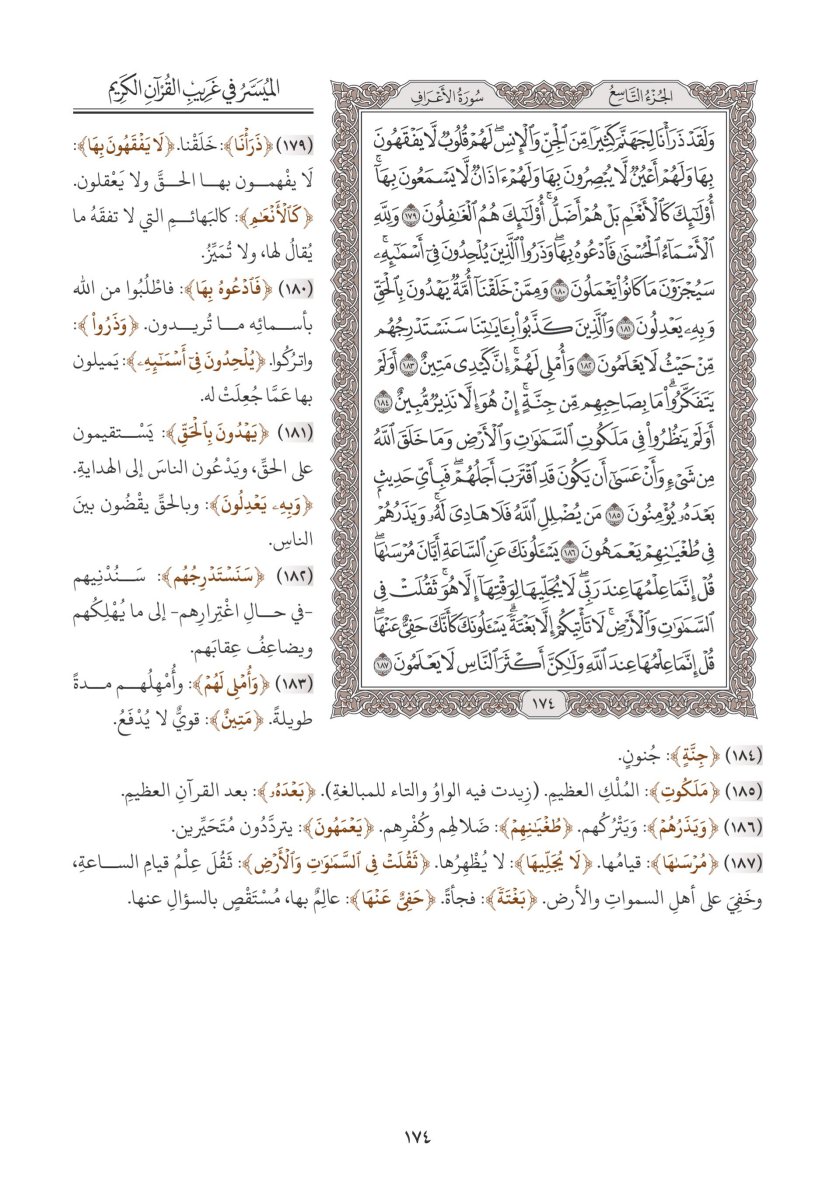 الميسر في غريب القرآن الكريم
الجزء التاسع
سورة الأعراف
وَلَقَدْ ذَرَأْنَا لِجَهَنَّمَ كَثِيرًا مِّنَ ٱلْجِنِّ وَٱلْإِنسِ ۖ لَهُمْ قُلُوبٌ لَّا يَفْقَهُونَ
بِهَا وَلَهُمْ أَعْيُنٌ لَّا يُبْصِرُونَ بِهَا وَلَهُمْ ءَاذَانٌ لَّا يَسْمَعُونَ بِهَآ ۚ
أُو۟لَٰٓئِكَ كَٱلْأَنْعَٰمِ بَلْ هُمْ أَضَلُّ ۚ أُو۟لَٰٓئِكَ هُمُ ٱلْغَٰفِلُونَ ١٧٩ وَلِلَّهِ
ٱلْأَسْمَآءُ ٱلْحُسْنَىٰ فَٱدْعُوهُ بِهَا ۖ وَذَرُوا۟ ٱلَّذِينَ يُلْحِدُونَ فِىٓ أَسْمَٰٓئِهِۦ ۚ
سَيُجْزَوْنَ مَا كَانُوا۟ يَعْمَلُونَ ١٨٠ وَمِمَّنْ خَلَقْنَآ أُمَّةٌ يَهْدُونَ بِٱلْحَقِّ
وَبِهِۦ يَعْدِلُونَ ١٨١ وَٱلَّذِينَ كَذَّبُوا۟ بِـَٔايَٰتِنَا سَنَسْتَدْرِجُهُم
مِّنْ حَيْثُ لَا يَعْلَمُونَ ١٨٢ وَأُمْلِى لَهُمْ ۚ إِنَّ كَيْدِى مَتِينٌ ١٨٣ أَوَلَمْ
يَتَفَكَّرُوا۟ ۗ مَا بِصَاحِبِهِم مِّن جِنَّةٍ ۚ إِنْ هُوَ إِلَّا نَذِيرٌ مُّبِينٌ ١٨٤
أَوَلَمْ يَنظُرُوا۟ فِى مَلَكُوتِ ٱلسَّمَٰوَٰتِ وَٱلْأَرْضِ وَمَا خَلَقَ ٱللَّهُ
مِن شَىْءٍ وَأَنْ عَسَىٰٓ أَن يَكُونَ قَدِ ٱقْتَرَبَ أَجَلُهُمْ ۖ فَبِأَىِّ حَدِيثٍۭ
بَعْدَهُۥ يُؤْمِنُونَ ١٨٥ مَن يُضْلِلِ ٱللَّهُ فَلَا هَادِىَ لَهُۥ ۚ وَيَذَرُهُمْ
فِى طُغْيَٰنِهِمْ يَعْمَهُونَ ١٨٦ يَسْـَٔلُونَكَ عَنِ ٱلسَّاعَةِ أَيَّانَ مُرْسَىٰهَا ۖ
قُلْ إِنَّمَا عِلْمُهَا عِندَ رَبِّى ۖ لَا يُجَلِّيهَا لِوَقْتِهَآ إِلَّا هُوَ ۚ ثَقُلَتْ فِى
ٱلسَّمَٰوَٰتِ وَٱلْأَرْضِ ۚ لَا تَأْتِيكُمْ إِلَّا بَغْتَةً ۗ يَسْـَٔلُونَكَ كَأَنَّكَ حَفِىٌّ عَنْهَا ۖ
قُلْ إِنَّمَا عِلْمُهَا عِندَ ٱللَّهِ وَلَٰكِنَّ أَكْثَرَ ٱلنَّاسِ لَا يَعْلَمُونَ ١٨٧
١٧٤
(١٧٩) ﴿ذَرَأْنَا﴾: خَلَقْنا. ﴿لَا يَفْقَهُونَ بِهَا﴾:
لَا يفْهمون بهـا الحقَّ ولا يَعْقلون.
﴿كَٱلْأَنْعَٰمِ﴾: كالبَهائمِ التي لا تفقَهُ ما
يُقالُ لها، ولا تُمَيِّزُ.
(١٨٠) ﴿فَٱدْعُوهُ بِهَا﴾: فاطْلُبُوا من الله
بأسمائِه ما تُريدون. ﴿وَذَرُوا۟﴾:
واترُكُوا. ﴿يُلْحِدُونَ فِىٓ أَسْمَٰٓئِهِۦ﴾: يَميلون
بها عَمَّا جُعِلَتْ له.
(١٨١) ﴿يَهْدُونَ بِٱلْحَقِّ﴾: يَسْتقيمون
على الحقِّ، ويَدْعُون الناسَ إلى الهدايةِ.
﴿وَبِهِۦ يَعْدِلُونَ﴾: وبالحقِّ يقْضُون بينَ
الناسِ.
(١٨٢) ﴿سَنَسْتَدْرِجُهُم﴾: سَنُدْنِيهم
-في حالِ اغْتِرارِهم- إلى ما يُهْلِكُهم
ويضاعِفُ عِقابَهم.
(١٨٣) ﴿وَأُمْلِى لَهُمْ﴾: وأُمْهِلُهم مدةً
طويلةً. ﴿مَتِينٌ﴾: قويٌّ لا يُدْفَعُ.
(١٨٤) ﴿جِنَّةٍ﴾: جُنونٍ.
(١٨٥) ﴿مَلَكُوتِ﴾: المُلْكِ العظيمِ. (زِيدت فيه الواوُ والتاء للمبالغةِ). ﴿بَعْدَهُۥ﴾: بعد القرآنِ العظيمِ.
(١٨٦) ﴿وَيَذَرُهُمْ﴾: وَيَتْرُكُهم. ﴿طُغْيَٰنِهِمْ﴾: ضَلالهِم وكُفْرِهم. ﴿يَعْمَهُونَ﴾: يتردَّدُون مُتَحَيِّرين.
(١٨٧) ﴿مُرْسَىٰهَا﴾: قيامُها. ﴿لَا يُجَلِّيهَا﴾: لا يُظْهِرُها. ﴿ثَقُلَتْ فِى ٱلسَّمَٰوَٰتِ وَٱلْأَرْضِ﴾: ثَقُلَ عِلْمُ قيامِ الساعةِ،
وخَفِيَ على أهلِ السمواتِ والأرض. ﴿بَغْتَةً﴾: فجأةً. ﴿حَفِىٌّ عَنْهَا﴾: عالِمٌ بها، مُسْتَقْصٍ بالسؤالِ عنها.
١٧٤